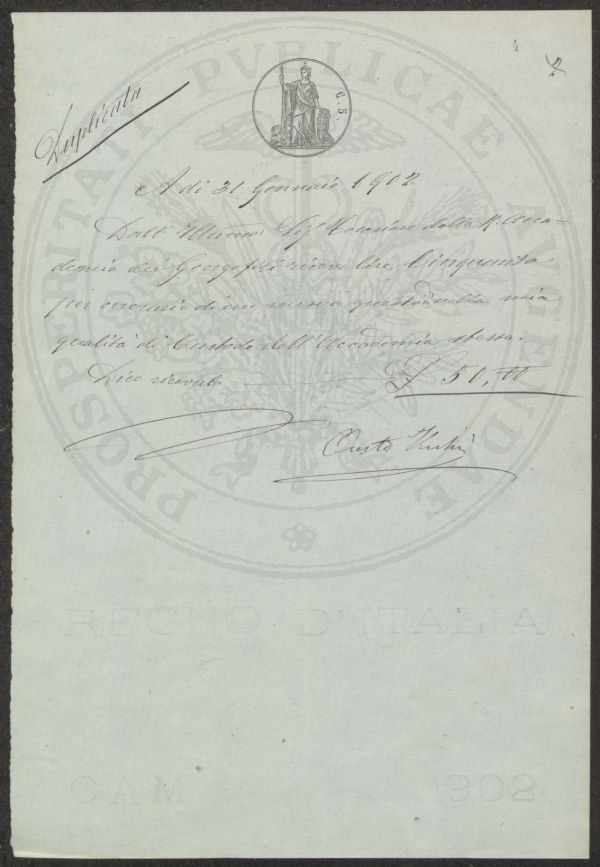 4 2
Duplicata
C. 5.
PROSPERITATI PVBLICAE AVGENDAE
A dì 31 Gennaio 1902
Dall' Sigr della R. Acca-
demia dei Georgofili ricevo Lire Cinquanta
per onorario di un mese a questo nella mia
qualità di Custode dell'Accademia stessa.
Dico ricevute £ 50,
REGNO D'ITALIA